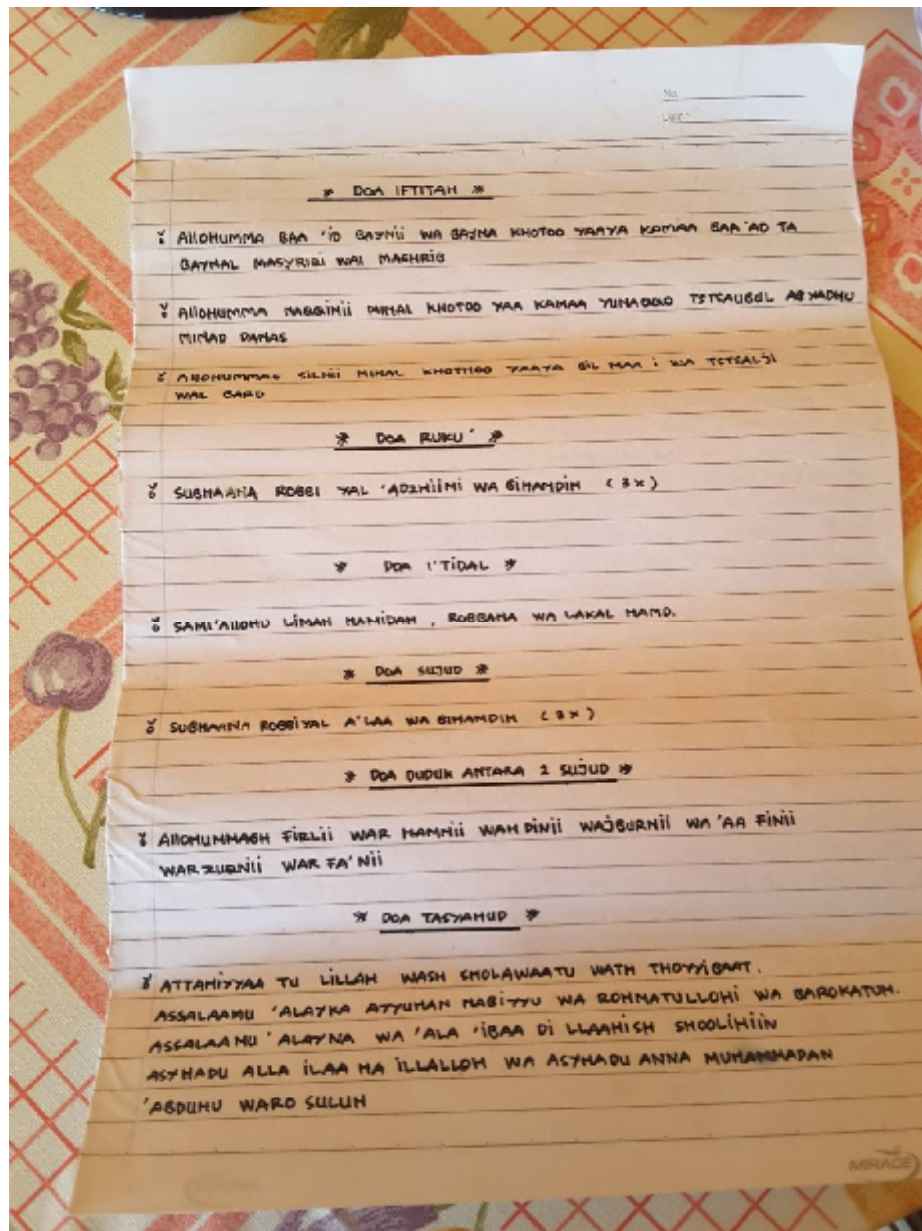 No.
Date:
* DOA IFTITAH *
ALLOHUMMA BAA 'ID BAYNII WA BAYNA KHOTOO YAAYA KAMAA BAA 'AD TA
BAYNAL MASYRIQI WAL MAGHRIB
ALLOHUMMA NAQQINII MINAL KHOTOO YAA KAMAA YUNAQQO TSTSAUBUL ABYADHU
MINAD DANAS
ALLOHUMMAGH SILNII MINAL KHOTHOO YAAYA BIL MAA i WA TSTSALJI
WAL BARD
* DOA RUKU' *
SUBHAANA ROBBI YAL 'ADZHIIMI WA BIHAMDIH (3x)
* DOA I'TIDAL *
SAMI'ALLOHU LIMAN HAMIDAH, ROBBANA WA LAKAL HAMD.
* DOA SUJUD *
SUBHAANA ROBBIYAL A'LAA WA BIHAMDIH (3x)
* DOA DUDUK ANTARA 2 SUJUD *
ALLOHUMMAGH FIRLII WAR HAMNII WAH DINII WAJBURNII WA 'AA FINII
WARZUQNII WAR FA'NII
* DOA TASYAHUD *
ATTAHIYYAA TU LILLAH WASH SHOLAWAATU WATH THOYYIBAAT.
ASSALAAMU 'ALAYKA AYYUHAN NABIYYU WA ROHMATULLOHI WA BAROKATUH.
ASSALAAMU 'ALAYNA WA 'ALA 'IBAA DI LLAAHISH SHOOLIHIIN
ASYHADU ALLA ILAA HA ILLALLOH WA ASYHADU ANNA MUHAMMADAN
'ABDUHU WARO SULUH
MIRAGE